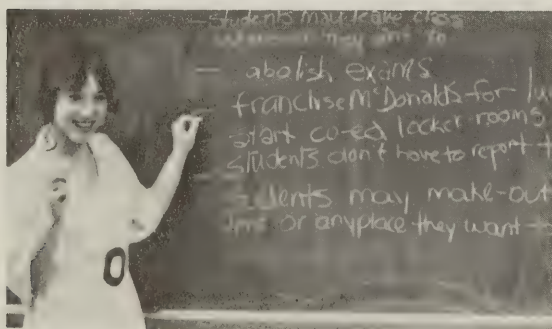 — Students may leave class
whenever they want to
— abolish exams
franchise McDonalds for lu
start co-ed locker rooms
students don't have to report t
— Students may make-out
time or anyplace they want
O